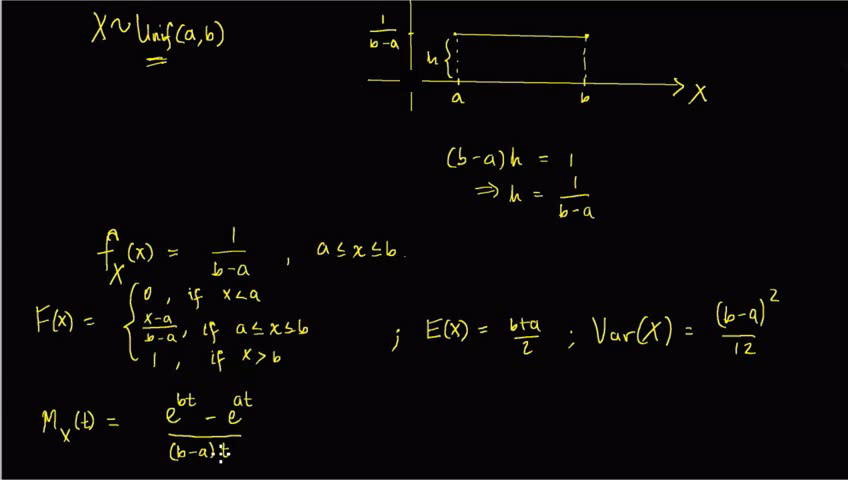 X ~ Unif(a,b)
1/(b-a)
h
a b X
(b-a)h = 1
⇒ h = 1/(b-a)
f_X(x) = 1/(b-a) , a ≤ x ≤ b.
F(x) = { 0 , if x < a
(x-a)/(b-a) , if a ≤ x ≤ b
1 , if x > b
; E(X) = (b+a)/2 ; Var(X) = (b-a)²/12
M_X(t) = (e^{bt} - e^{at})/((b-a)·t)